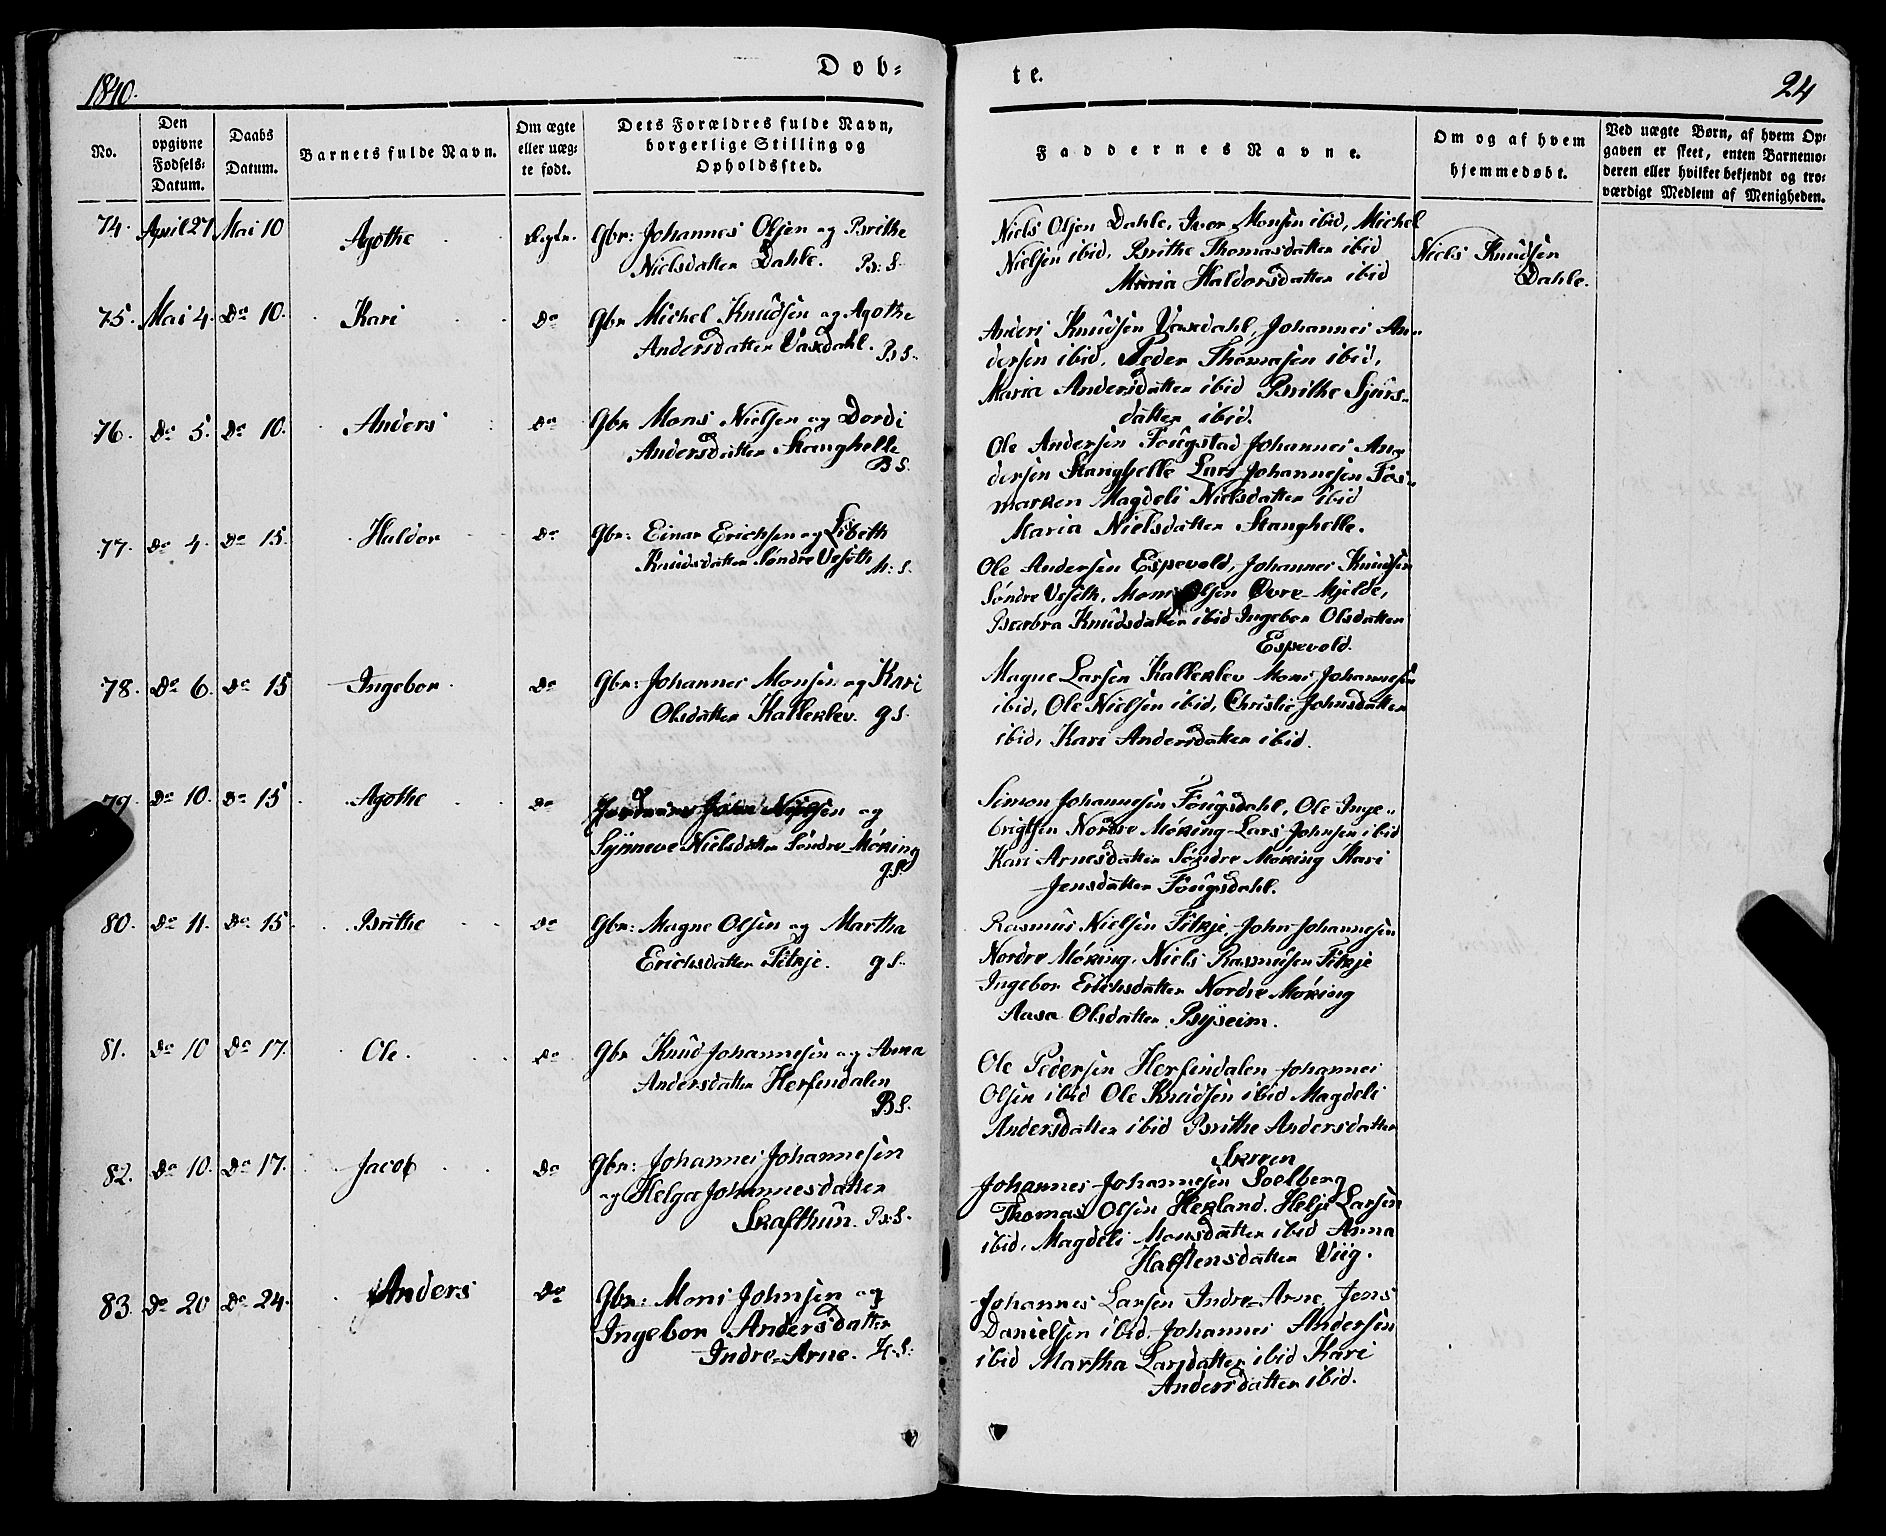 1840.
Døb-
te.
24
No.
Den
opgivne
Fødsels-
Datum.
Daabs
Datum.
Barnets fulde Navn.
Om ægte
eller uæg-
te født.
Dets Forældres fulde Navn,
borgerlige Stilling og
Opholdssted.
Faddernes Navne.
Om og af hvem
hjemmedøbt.
Ved uægte Børn, af hvem Op-
gaven er skeet, enten Barnemo-
deren eller hvilket bekjendt og tro-
værdigt Medlem af Menigheden.
74. April 27 Mai 10 Agothe Gbr: Johannes Olsen og Brithe
Nielsdatter Dahle. B:S.
Niels Olsen Dahle, Iver Monsen ibid, Michel
Nielsen ibid, Brithe Thomasdatter ibid
Maria Haldorsdatter ibid
Niels Knudsen
Dahle.
75. Mai 4. Do 10. Kari Do Gbr Michel Knudsen og Agothe
Andersdatter Vaxdahl. B.S.
Anders Knudsen Vaxdahl, Johannes An-
dersen ibid. Peder Thomasen ibid,
Maria Andersdatter ibid Brithe Sjurs-
datter ibid.
76. Do 5. Do 10. Anders Do Gbr Mons Nielsen og Dordi
Andersdatter Stanghelle
B.S.
Ole Andersen Fougstad Johannes An-
dersen Stanghelle Lars Johannesen Fos-
marken Magdeli Nielsdatter ibid
Maria Nielsdatter Stanghelle.
77. Do 4. Do 15. Haldor Do Gbr: Einar Erichsen og Lisbeth
Knudsdatter Søndre Veseth
Ole Andersen Espevold, Johannes Knudsen
Søndre Veseth, Mons Olsen Øvre-Mjelde,
Barbra Knudsdatter ibid Ingebor Olsdatter
Espevold.
78. Do 6. Do 15 Ingebor Do Gbr: Johannes Monsen og Kari
Olsdatter Kalleklev. g.S.
Magne Larsen Kalleklev Mons Johannesen
ibid, Ole Nielsen ibid, Christie Johnsdatter
ibid, Kari Andersdatter ibid.
79. Do 10. Do 15 Agothe Do og
Synneve Nielsdatter Søndre-Møking
g.S.
Simon Johannesen Fougsdahl, Ole Inge-
brigtsen Nordre Møking Lars Johnsen ibid
Kari Arnesdatter Søndre Møking Kari
Jensdatter Fougsdahl.
80. Do 11. Do 15. Brithe Do Gbr: Magne Olsen og Martha
Erichsdatter Fitkje. g.S.
Rasmus Nielsen Fitkje, John Johannesen
Nordre Møking, Niels Rasmusen Fitkje
Ingebor Erichsdatter Nordre Møking
Aasa Olsdatter Byseim.
81. Do 10 Do 17. Ole. Do Gbr Knud Johannesen og Anna
Andersdatter Herfindalen
B.S.
Ole Pedersen Herfindalen Johannes
Olsen ibid Ole Knudsen ibid Magdeli
Andersdatter ibid Brithe Andersdatter
82. Do 10. Do 17. Jacob Do Gbr: Johannes Johannesen
og Helga Johannesdatter
Skafthun. B:S.
Johannes Johannesen Soelberg
Thomas Olsen Hekland. Helje Larsen
ibid, Magdeli Monsdatter ibid Anna
Halstensdatter Viig.
83. Do 20 Do 24. Anders Do Gbr: Mons Johnsen og
Ingebor Andersdatter
Indre-Arne. H.S.
Johannes Larsen Indre-Arne, Jens
Danielsen ibid, Johannes Andersen
ibid Martha Larsdatter ibid Kari
Andersdatter ibid.